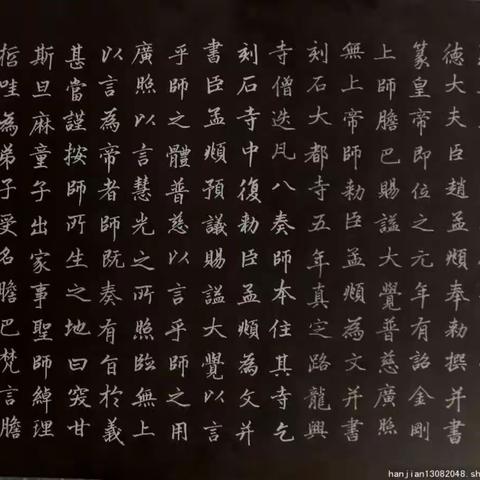 德大夫臣趙孟頫奉勅撰并書
篆皇帝即位之元年有詔金剛
上師膽巴賜謚大覺普慈廣照
無上帝師勅臣孟頫為文并書
刻石大都寺五年真定路龍興
寺僧迭凡八奏師本住其寺乞
刻石寺中復勅臣孟頫為文并
書臣孟頫預議賜謚大覺以言
乎師之體普慈以言乎師之用
廣照以言慧光之所照臨無上
以言為帝者師既奏有旨於義
甚當謹按師所生之地曰突甘
斯旦麻童子出家事聖師綽理
哲哇為弟子受名膽巴梵言膽
hanjian13082048.sh